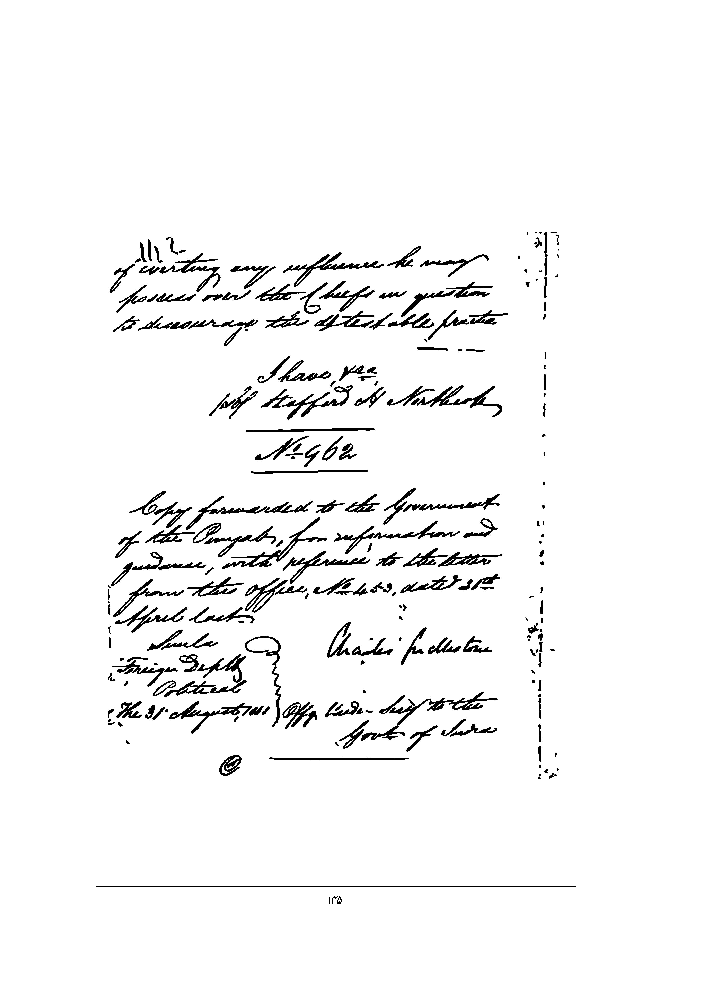 of exerting any influence he may
possess over the Chiefs in question
to discourage this detestable practice
I have, &ca,
Stafford H Northcote
No 962
Copy forwarded to the Government
of the Punjab, for information and
guidance, with reference to the letter
from this office, No 453, dated
April last.
Simla
Foreign Deptt
Political
The 31st August, Offg. Under-Secy to the
Charles Girdlestone
Govt of India
۱۳۵